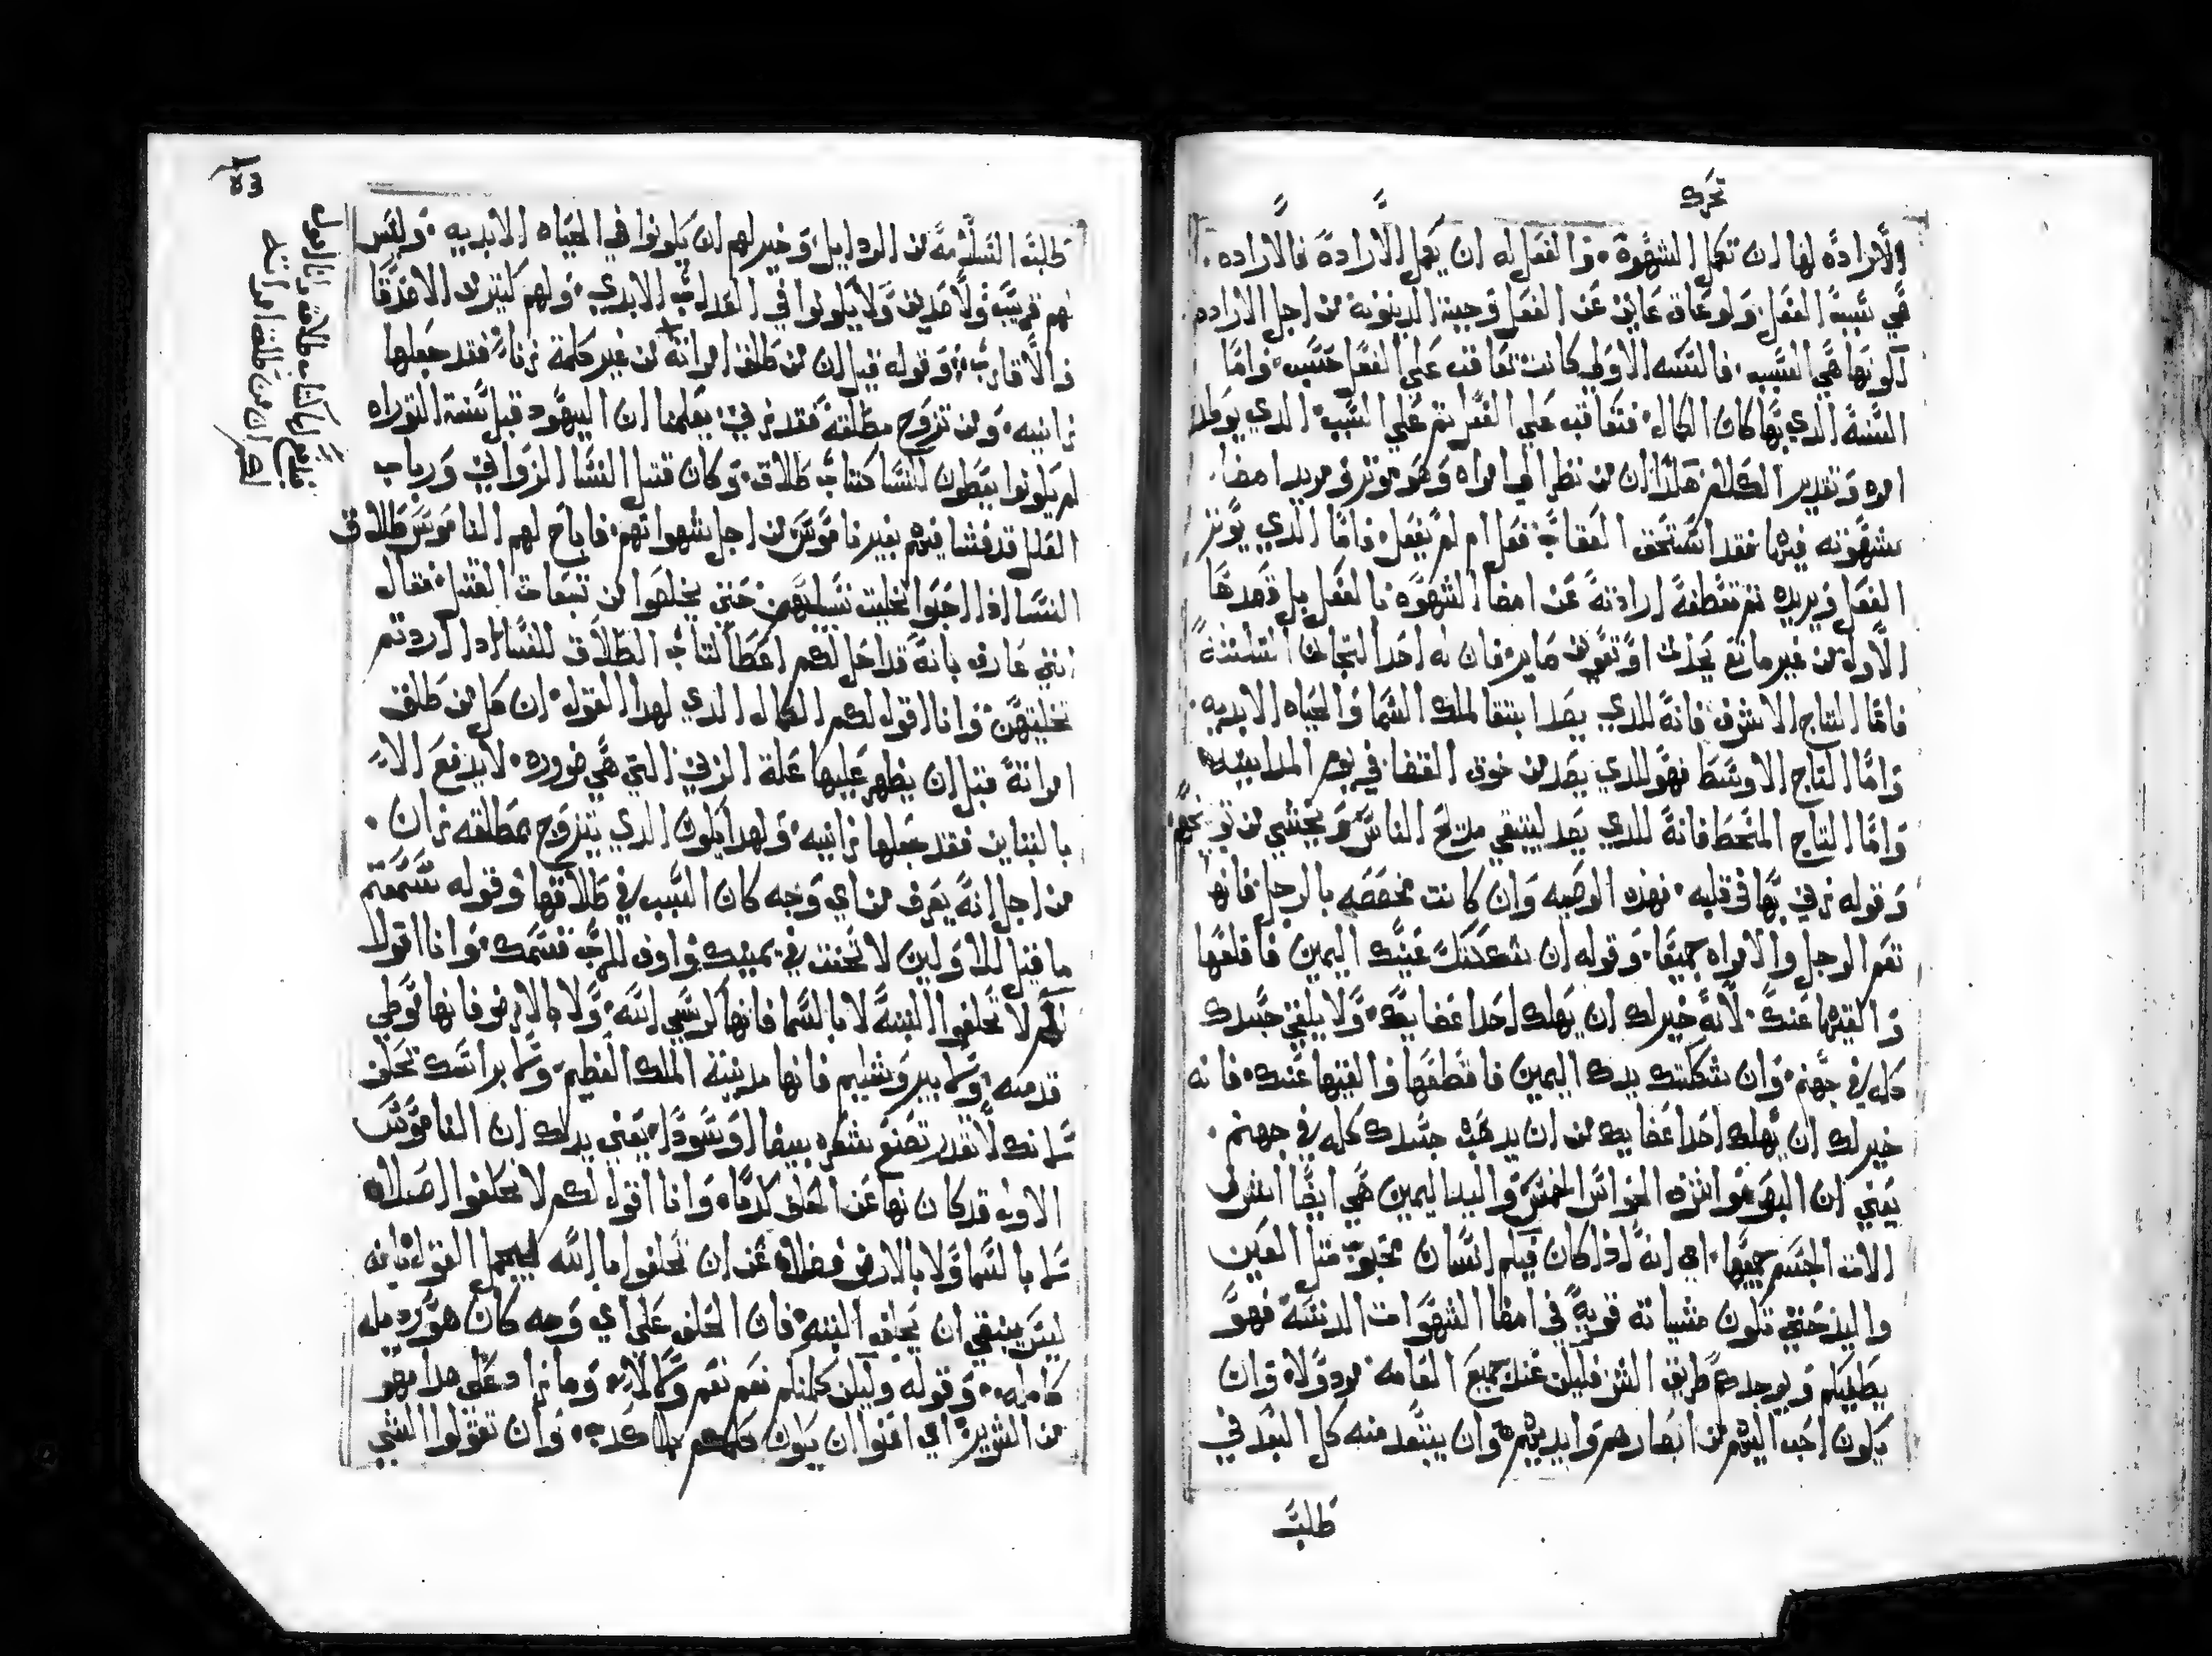 تحرك
الارادة لها ان تكمل الشهوة. والفعل له ان يكمل الارادة فالارادة.
هي سببة الفعل. ولو عاق عايق عن الفعل وجبة الدينونة من اجل الارادة
لكونها هي السبب. فالسنة الاولى كانت تعاقب على الفعل حسب. واما
السنة الذي بها كان الكمال. فتعاقب على الفعل ثم على السبب. الذي يولد
وتقدير الكلام هكذا ان من نظر الى امراه وهو موثر ومريد امضا.
شهوته فيها فقد استحق العقاب فعل ام لم يفعل. فاما الذي يوثر
الفعل ويريده ثم تعطفه ارادته عن امضا الشهوه بالفعل بل قمعها
الاوله من غير مانع يحدث او تعويق صاير. فان له احد التيجان الثلثة
فاما التاج الاشرف فانه للذي يصد ابتغا لملك السما والحياه الابديه.
واما التاج الاوسط فهو للذي يصد من خوف القضا في يوم المداينه
واما التاج المنحط فانه للذي يصد ليبتغي مدح الناس ويخشي من توبيخهم.
وقوله زني بها في قلبه. فهذه الوصيه وان كانت مخصصه بالرجل. فانها
تعم الرجل والامراه جميعا. وقوله ان شككتك عينك اليمين فاقلعها
والقيها عنك. لانه خير لك ان يهلك احد اعضايك. ولا يلقي جسدك
كله في جهنم. وان شككتك يدك اليمين فاقطعها والقيها عنك. فانه
خير لك ان يهلك احد اعضايك من ان يدهب جسدك كله في جهنم.
يعني ان البصر هو اشرف الحواس الخمس واليد اليمين هي ايضا اشرف
الات الجسم جميعها. اي انه اذا كان فيكم انسان محبوب مثل العين
واليد حتي تكون مشياته قويه في امضا الشهوات الدنسه فهو
وان
يكون احب اليهم من ابصارهم وايديهم. وان يبتعد منه كل البعد في
طلبة
طلبة السلامة من الردايل وخير لهم ان يكونوا في الحياه الابديه. وليس
لهم قريب ولا صديق ولا يكونوا في العداب الابدي. ولهم كثير من الاصدقا
والاقارب. وقوله قيل ان من طلق امراته من غير كلمة زنا. فقد جعلها
زانيه. ومن تزوج مطلقه فقد زني. يعلمنا ان اليهود قبل سنة التوراه
لم يكونوا يعطون النسا كتاب طلاق. وكان قتل النسا الزواني وربات
العلل قد فشا فيهم بغير ناموس من اجل شهواتهم. فاباح لهم الناموس طلاق
النسا اذا احبوا تخليت نسايهم. حتي يخلصوا من تبعات القتل. فقال
انني عارف بانه قد احل لكم اعطا كتاب الطلاق للنسا اذا اردتم
تخليتهن. وانا اقول لكم الكمال الذي لهدا القول. ان كل من طلق
امراته قبل ان يظهر عليها علة الزني التي هي ضروره. لا يدفع الا
بالتباين فقد جعلها زانيه. ولهدا يكون الذي يتزوج بمطلقه زان.
من اجل انه يعرف من اي وجه كان السبب في طلاقها. وقوله سمعتم
ما قيل للاولين لا تحنث في يمينك. واوف للرب قسمك. وانا اقول
لكم لا تحلفوا البتة لا بالسما فانها كرسي الله. ولا بالارض فانها موطي
قدميه. ولا بيروشليم فانها مدينة الملك العظيم. ولا براسك تحلف
لانك لا تقدر تصنع شعره بيضا او سودا. يعني بدلك ان الناموس
الاول قد كان نها عن الحلف كدبا. وانا اقول لكم لا تحلفوا اصلا.
لا بالسما ولا بالارض فضلا عن ان تحلفوا بالله
ليس ينبغي ان يحلف البته. فان الحلف على اي وجه كان هو رديله
كامله. وقوله وليكن كلمتكم نعم نعم ولا لا. وما زاد على هدا فهو
من الشرير. اي اعنوا ان يكون كلامكم بلا كدب. وان تقولوا الشي